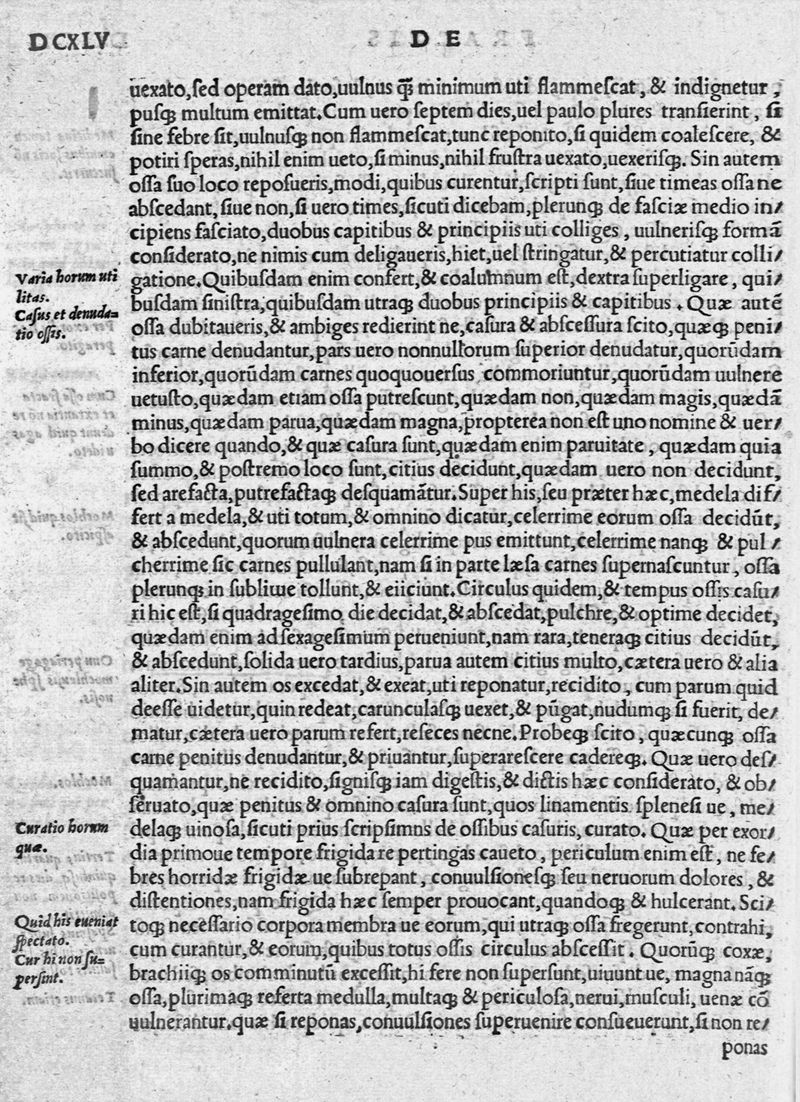 DCXLV
DE
uexato,ſed operam dato,uulnus q̃ꝫ minimum uti flammeſcat, & indignetur,
puſqꝫ multum emittat.Cum uero ſeptem dies,uel paulo plures tranſierint, ſi
ſine febre ſit,uulnuſqꝫ non flammeſcat,tunc reponito,ſi quidem coaleſcere, &
potiri ſperas,nihil enim ueto,ſi minus,nihil fruſtra uexato,uexeriſqꝫ. Sin autem
oſſa ſuo loco repoſueris,modi,quibus curentur,ſcripti ſunt,ſiue timeas oſſa ne
abſcedant,ſiue non,ſi uero times,ſicuti dicebam,plerunqꝫ de faſciæ medio in/
cipiens faſciato,duobus capitibus & principiis uti colliges, uulneriſqꝫ formā
conſiderato,ne nimis cum deligaueris,hiet,uel ſtringatur, & percutiatur colli/
Varia horum uti
gatione.Quibuſdam enim confert,& coalumnum eſt,dextra ſuperligare, qui/
litas.
buſdam ſiniſtra,quibuſdam utraqꝫ duobus principiis & capitibus . Quæ autē
Caſus et denuda=
oſſa dubitaueris,& ambiges redierint ne,caſura & abſceſſura ſcito,quæqꝫ peni/
tio oſſis.
tus carne denudantur,pars uero nonnullorum ſuperior denudatur,quorūdam
inferior,quorūdam carnes quoquouerſus commoriuntur,quorūdam uulnere
uetuſto,quædam etiam oſſa putreſcunt,quædam non,quædam magis,quædā
minus,quædam parua,quædam magna,propterea non eſt uno nomine & uer/
bo dicere quando,& quæ caſura ſunt,quædam enim paruitate, quædam quia
ſummo,& poſtremo loco ſunt,citius decidunt,quædam uero non decidunt,
ſed arefacta,putrefactaqꝫ deſquamātur.Super his,ſeu præter hæc,medela dif/
fert a medela,& uti totum,& omnino dicatur,celerrime eorum oſſa decidūt,
& abſcedunt,quorum uulnera celerrime pus emittunt,celerrime nanqꝫ & pul/
cherrime ſic carnes pullulant,nam ſi in parte læſa carnes ſupernaſcuntur, oſſa
plerunqꝫ in ſublime tollunt,& eiiciunt.Circulus quidem,& tempus oſſis caſu/
ri hic eſt,ſi quadrageſimo die decidat,& abſcedat,pulchre,& optime decidet,
quædam enim ad ſexageſimum perueniunt,nam rara,teneraqꝫ citius decidūt,
& abſcedunt,ſolida uero tardius,parua autem citius multo,cætera uero & alia
aliter.Sin autem os excedat,& exeat,uti reponatur,recidito, cum parum quid
deeſſe uidetur,quin redeat,carunculaſqꝫ uexet,& pūgat,nudumqꝫ ſi fuerit, de/
matur,cætera uero parum refert,reſeces necne.Probeqꝫ ſcito, quæcunqꝫ oſſa
carne penitus denudantur,& priuantur,ſuperareſcere cadereqꝫ. Quæ uero deſ/
quamantur,ne recidito,ſigniſqꝫ iam digeſtis,& dictis hæc conſiderato, & ob/
ſeruato,quæ penitus & omnino caſura ſunt,quos linamentis ſpleneſi ue, me/
Curatio horum
delaqꝫ uinoſa,ſicuti prius ſcripſimus de oſſibus caſuris, curato. Quæ per exor/
quæ.
dia primoue tempore frigida re pertingas caueto, periculum enim eſt, ne fe/
bres horridæ frigidæ ue ſubrepant, conuulſioneſqꝫ ſeu neruorum dolores, &
diſtentiones,nam frigida hæc ſemper prouocant,quandoqꝫ & hulcerant. Sci/
Quid his eueniat
toqꝫ neceſſario corpora membra ue eorum,qui utraqꝫ oſſa fregerunt,contrahi,
ſpectato.
cum curantur,& eorum,quibus totus oſſis circulus abſceſſit . Quorūqꝫ coxæ,
Cur hi non ſu=
brachiiqꝫ os comminutū exceſſit,hi fere non ſuperſunt,uiuunt ue, magna nāqꝫ
perſint.
oſſa,plurimaqꝫ referta medulla,multaqꝫ & periculoſa,nerui,muſculi, uenæ cō
uulnerantur.quæ ſi reponas,conuulſiones ſuperuenire conſueuerunt,ſi non re/
ponas